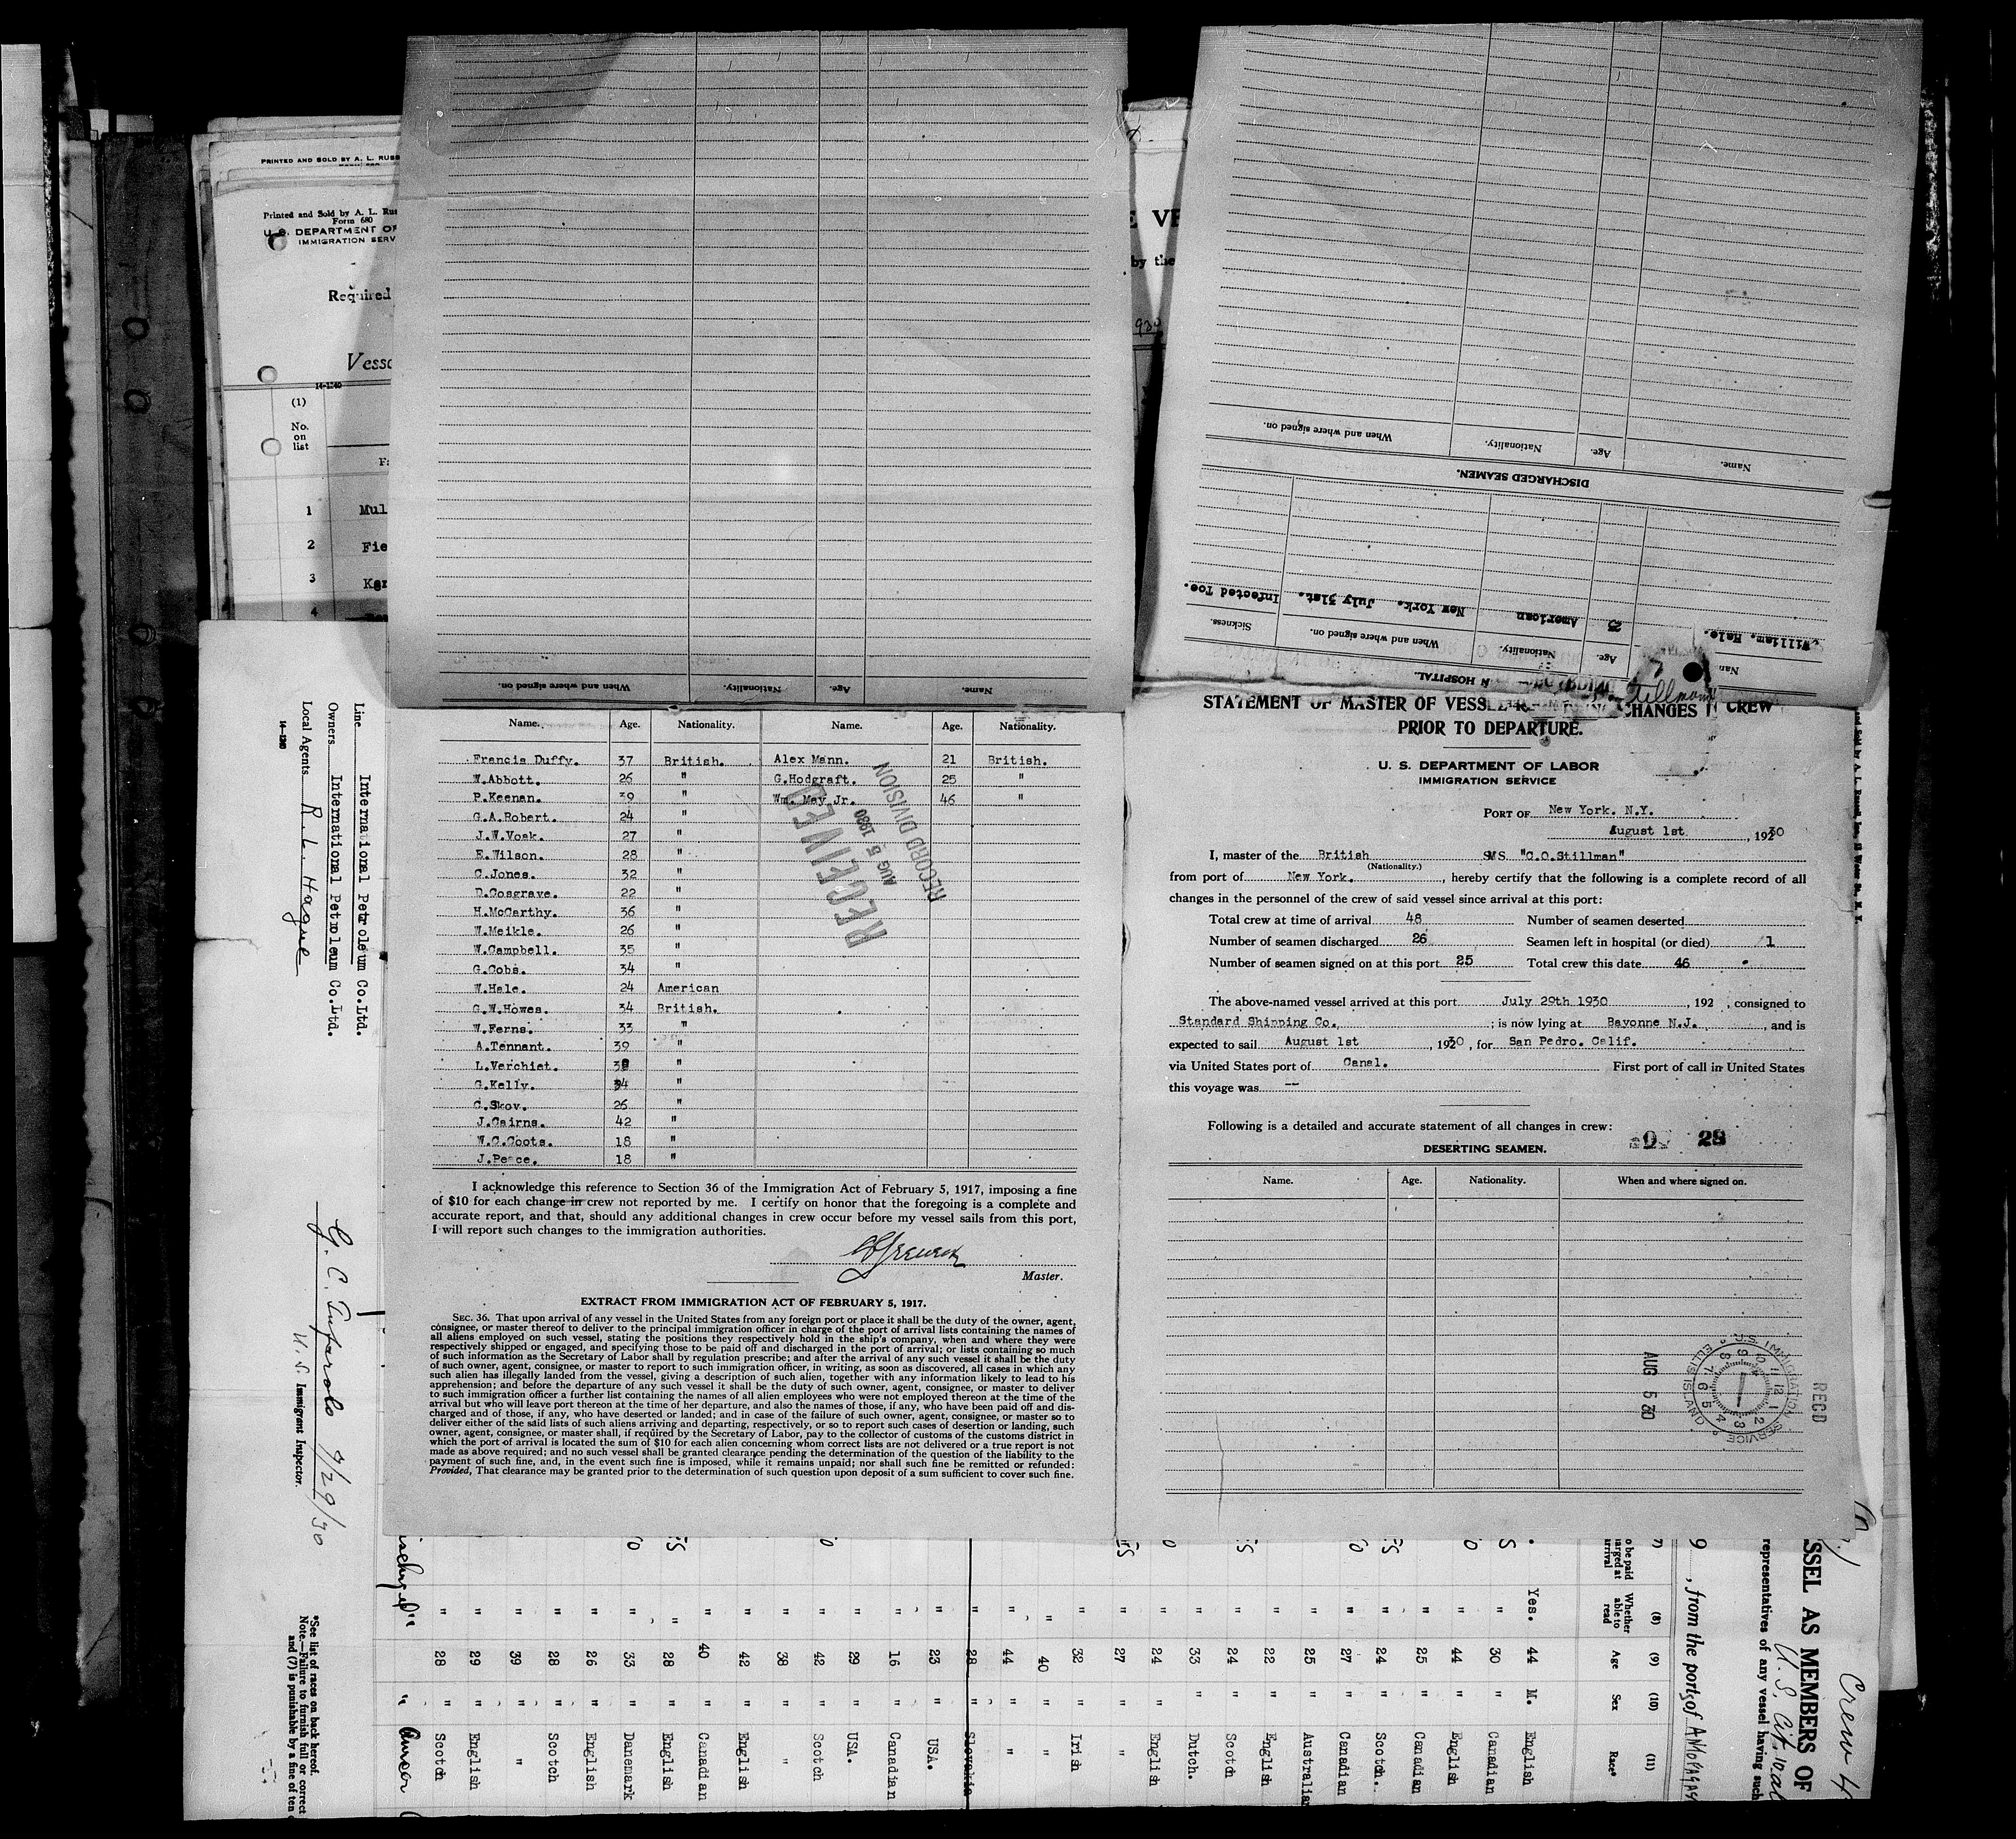 PRINTED AND SOLD BY A. L. RUSS
Printed and Sold by A. L. Rus
Form 680
U. S. DEPARTMENT OF
IMMIGRATION SERV
Required
Vess
14-1240
(1)
No.
on
list
1 Mul
2 Fie
3 Kar
4
E VE
by the
Line International Petroleum Co.Ltd.
Owners International Petroleum Co.Ltd.
Local Agents R. L. Hague
14-1240
7/29/30
U. S. Immigrant Inspector.
*See list of races on back hereof.
Note.—Failure to furnish full or correct
and (7) is punishable by a fine of ten
Name. Age. Nationality. When and where signed on.
Name. Age. Nationality. Name. Age. Nationality.
Francis Duffy. 37 British. Alex Mann. 21 British.
W.Abbott. 26 " G.Hodgraft. 25 "
P.Keenan. 39 " Wm. May Jr. 46 "
G.A.Robert. 24 "
J.W.Voak. 27 "
E.Wilson. 28 "
C.Jones. 32 "
D.Cosgrave. 22 "
H.McCarthy. 36 "
W.Meikle. 26 "
W.Campbell. 35 "
G.Cobs. 34 "
W.Hale. 24 American
G.W.Howes. 34 British.
W.Ferns. 33 "
A.Tennant. 39 "
L.Verchist. "
G.Kelly. 34 "
C.Skov. 26 "
J.Cairns. 42 "
W.C.Coots. 18 "
J.Peace. 18 "
RECEIVED
AUG 5 1930
RECORD DIVISION
I acknowledge this reference to Section 36 of the Immigration Act of February 5, 1917, imposing a fine
of $10 for each change in crew not reported by me. I certify on honor that the foregoing is a complete and
accurate report, and that, should any additional changes in crew occur before my vessel sails from this port,
I will report such changes to the immigration authorities.
Master.
EXTRACT FROM IMMIGRATION ACT OF FEBRUARY 5, 1917.
SEC. 36. That upon arrival of any vessel in the United States from any foreign port or place it shall be the duty of the owner, agent,
consignee, or master thereof to deliver to the principal immigration officer in charge of the port of arrival lists containing the names of
all aliens employed on such vessel, stating the positions they respectively hold in the ship's company, when and where they were
respectively shipped or engaged, and specifying those to be paid off and discharged in the port of arrival; or lists containing so much
of such information as the Secretary of Labor shall by regulation prescribe; and after the arrival of any such vessel it shall be the duty
of such owner, agent, consignee, or master to report to such immigration officer, in writing, as soon as discovered, all cases in which any
such alien has illegally landed from the vessel, giving a description of such alien, together with any information likely to lead to his
apprehension; and before the departure of any such vessel it shall be the duty of such owner, agent, consignee, or master to deliver
to such immigration officer a further list containing the names of all alien employees who were not employed thereon at the time of the
arrival but who will leave port thereon at the time of her departure, and also the names of those, if any, who have been paid off and dis-
charged and of those, if any, who have deserted or landed; and in case of the failure of such owner, agent, consignee, or master so to
deliver either of the said lists of such aliens arriving and departing, respectively, or so to report such cases of desertion or landing, such
owner, agent, consignee, or master shall, if required by the Secretary of Labor, pay to the collector of customs of the customs district in
which the port of arrival is located the sum of $10 for each alien concerning whom correct lists are not delivered or a true report is not
made as above required; and no such vessel shall be granted clearance pending the determination of the question of the liability to the
payment of such fine, and, in the event such fine is imposed, while it remains unpaid; nor shall such fine be remitted or refunded:
Provided, That clearance may be granted prior to the determination of such question upon deposit of a sum sufficient to cover such fine.
IN HOSPITAL.
Nam Age. Nationality. When and where signed on. Sickness.
William. Hale. American New York. July 31st. Infected Toe.
DISCHARGED SEAMEN.
Name. Age. Nationality. When and where signed on.
Stillman
STATEMENT OF MASTER OF VESSEL CHANGES IN CREW
PRIOR TO DEPARTURE.
U. S. DEPARTMENT OF LABOR
IMMIGRATION SERVICE
PORT OF New York. N.Y.
August 1st , 1930
I, master of the British SMS "C.O.Stillman"
(Nationality.)
from port of New York. , hereby certify that the following is a complete record of all
changes in the personnel of the crew of said vessel since arrival at this port:
Total crew at time of arrival 48 Number of seamen deserted
Number of seamen discharged 26 Seamen left in hospital (or died) 1
Number of seamen signed on at this port 25 Total crew this date 46
The above-named vessel arrived at this port July 29th 1930 , 192 , consigned to
Standard Shipping Co. ; is now lying at Bayonne N.J. , and is
expected to sail August 1st , 1930 , for San Pedro. Calif.
via United States port of Canal. First port of call in United States
this voyage was --
Following is a detailed and accurate statement of all changes in crew:
28
DESERTING SEAMEN.
Name. Age. Nationality. When and where signed on.
REC'D
U.S. IMMIGRATION SERVICE
ELLIS ISLAND
AUG 5 30
Crew 4
U.S. Cit.
SSEL AS MEMBERS OF
representatives of any vessel having such
9 , from the ports of
(8) (9) (10) (11)
o be paid
arged at
arrival
Whether
able to
read
Age Sex Race*
Yes. 44 M. English
" 30 " Canadian
" 44 " English
" 25 " Canadian
" 24 " Scotch.
" 27 " Canadian
" 25 " Australian
" 22 " English
" 24 " Scotch
" 33 " Dutch.
" 24 " English
" 27 " "
" 32 " Irish
" 40 " "
" 44 " "
" 28 " Slovakia
" 23 " USA.
" 16 " Canadian
" 29 " USA.
" 42 " Scotch
" 38 " "
" 42 " English
" 40 " Canadian
" 28 " English
" 33 " Danemark
" 26 " English
" 28 " Scotch
" 39 " "
" 29 " English
" 28 " Scotch